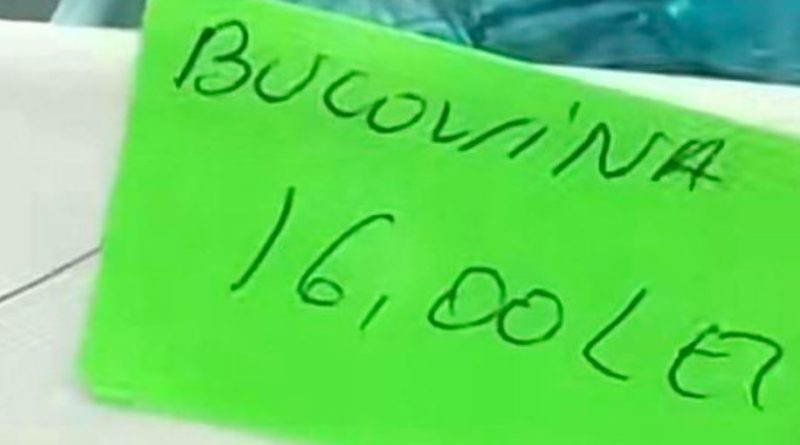 BUCOVINA
16,00 LEI